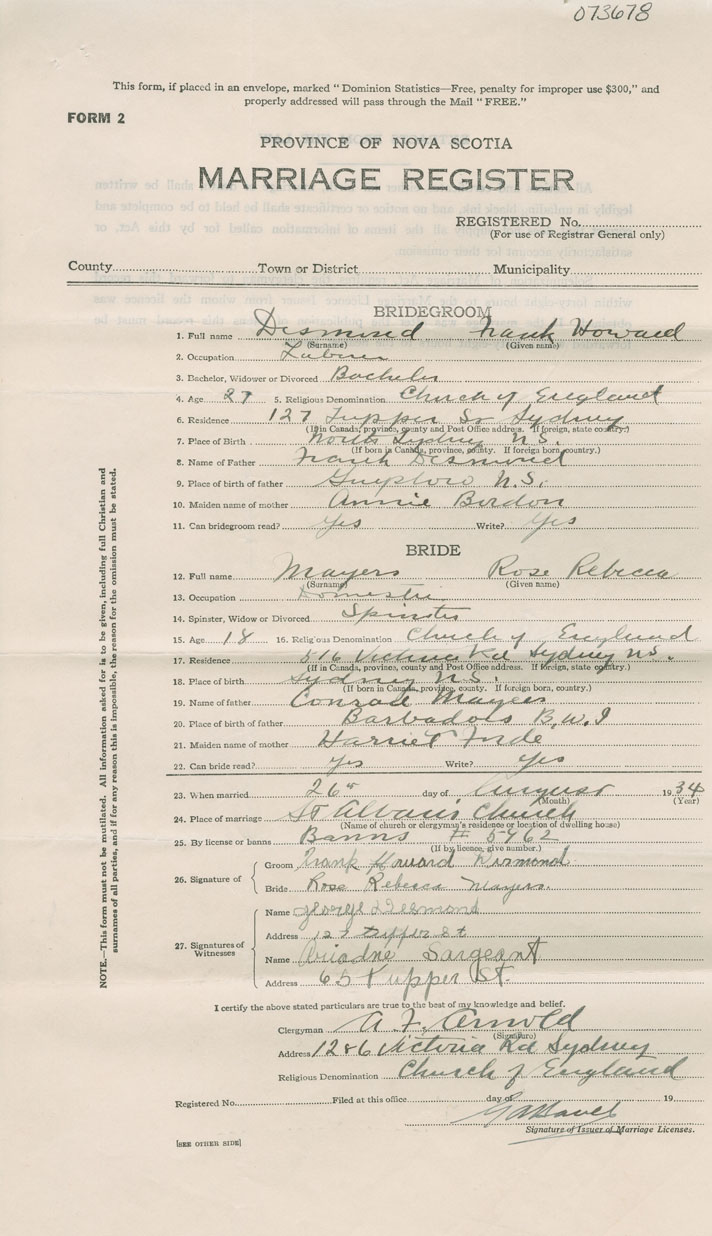 073678
This form, if placed in an envelope, marked "Dominion Statistics—Free, penalty for improper use $300," and
properly addressed will pass through the Mail "FREE."
FORM 2
PROVINCE OF NOVA SCOTIA
MARRIAGE REGISTER
REGISTERED No.
(For use of Registrar General only)
County Town or District Municipality
BRIDEGROOM
1. Full name Desmond Frank Howard
(Surname) (Given name)
2. Occupation Laborer
3. Bachelor, Widower or Divorced Bachelor
4. Age 27 5. Religious Denomination Church of England
6. Residence 127 Tupper St Sydney
(If in Canada, province, county and Post Office address. If foreign, state country.)
7. Place of Birth North Sydney N.S.
(If born in Canada, province, county. If foreign born, country.)
8. Name of Father Frank Desmond
9. Place of birth of father Guysboro N.S.
10. Maiden name of mother Annie Borden
11. Can bridegroom read? Yes Write? Yes
BRIDE
12. Full name Mayers Rose Rebecca
(Surname) (Given name)
13. Occupation Domestic
14. Spinster, Widow or Divorced Spinster
15. Age 18 16. Religious Denomination Church of England
17. Residence 516 Victoria Rd Sydney N.S.
(If in Canada, province, county and Post Office address. If foreign, state country.)
18. Place of Birth Sydney N.S.
(If born in Canada, province, county. If foreign born, country.)
19. Name of father Conrad Mayers
20. Place of birth of father Barbados B.W.I
21. Maiden name of mother Harriet Forde
22. Can bride read? Yes Write? Yes
23. When married 26th day of August 1934
(Month) (Year)
24. Place of marriage St Albans Church
(Name of church or clergyman's residence or location of dwelling house)
25. By license or banns Banns # 5962
(If by licence, give number.)
26. Signature of
Groom Frank Howard Desmond
Bride Rose Rebecca Mayers.
27. Signatures of Witnesses
Name George Desmond
Address 127 tupper St
Name Ariadne Sargeant
Address 65 Tupper St.
I certify the above stated particulars are true to the best of my knowledge and belief.
Clergyman A. F. Arnold
(Signature)
Address 1286 Victoria Rd Sydney
Religious Denomination Church of England
Registered No. Filed at this office day of 19
Signature of Issuer of Marriage Licenses.
[SEE OTHER SIDE]
NOTE.—This form must not be mutilated. All information asked for is to be given, including full Christian and
surnames of all parties, and if for any reason this is impossible, the reason for the omission must be stated.